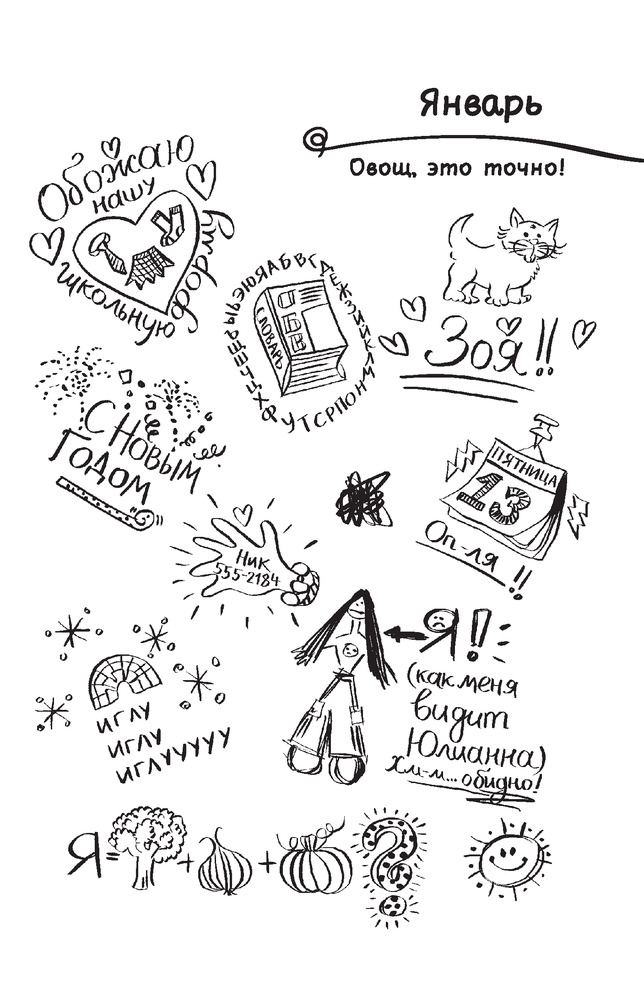 Январь
Овощ, это точно!
Обожаю
нашу
школьную
форму
АБВГДЕЖЗИЙКЛМНОПРСТУФХЦЧШЩЪЫЬЭЮЯ
СЛОВАРЬ
а
Б
В
Зоя!!
С НОВЫМ
ГОДОМ
ПЯТНИЦА
13
Оп-ля!!
Ник
555-2184
Я!!
(как меня
видит
Юлианна)
Хм-м... обидно!
ИГЛУ
ИГЛУ
ИГЛУУУУУ
Я= + + ?